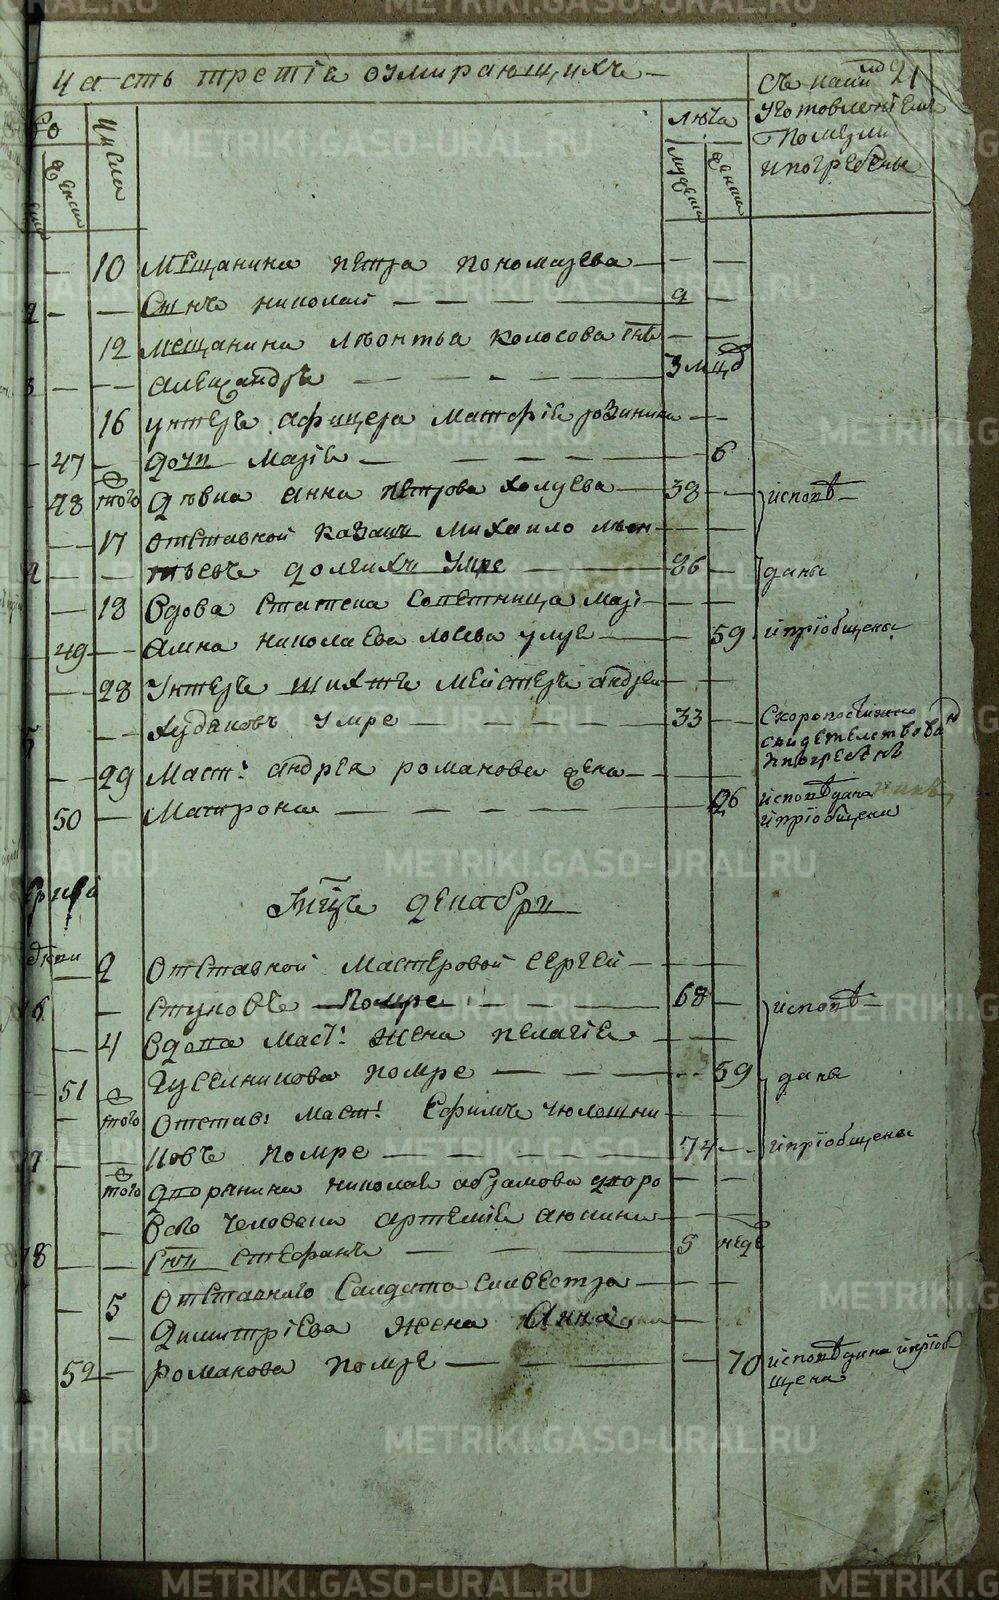 Часть третїя оумирающихъ
21
Съ каки
уготовленїем
Померли
и погребены
Числа
женск
лѣта
мужеска
женска
10 Мещанина Петра Пономарева
Сынъ николай 9
12 Мещанина Лвонтья Колосова снъ
Александръ 3 мцд
16 унтеръ афицера Матфѣя
47 дочь Марія 6
48 того Дѣвка Анна Петрова Холуева 38 исповѣ
17 отставной Казакъ Михаило Лвон
тьевъ долгихъ умре 86 даны
18 Вдова статска Советница Марі
49 амна николаева Лосева умре 59 и прїобщены
28 Унтеръ шихтъ мейстеръ андреи
Худяковъ умре 33 Скоропостижно
свидетелствован
и погребенъ
29 Маст: андрея романова жена
50 Матрона 26 исповѣдана
и прїобщена
Мцъ декабри
2 Отставной Мастеровой Сергей
Стуковъ Помре 68 исповѣ
4 вдова маст: жена пелагїя
51 Гуселникова помре 59 даны
того отстав: маст: Ефимъ Чюлошни
ковъ помре 74 и прїобщены
того дворянина николая абрамова дворо
ваго человека артемїя анкина
снъ стефанъ 5 неде
5 Отставнаго Салдата Силвестра
Димитрїева жена Анна
52 Романова помре 70 исповѣдана и прїоб
щена
METRIKI.GASO-URAL.RU